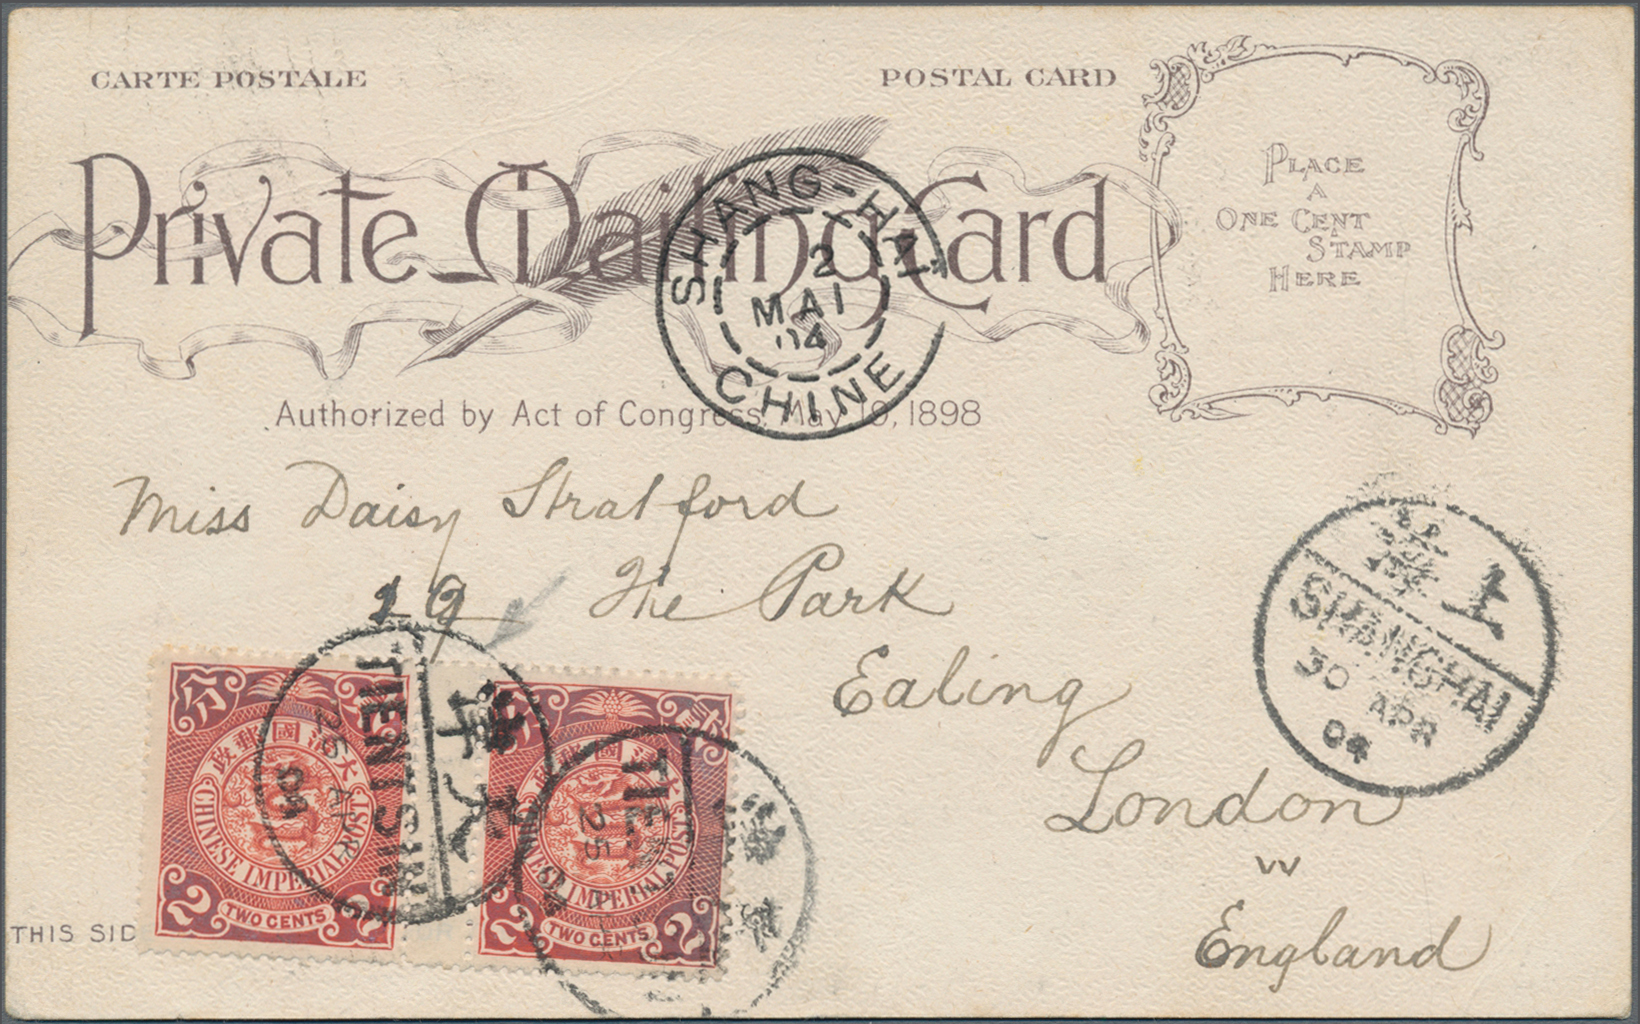 CARTE POSTALE
POSTAL CARD
Private Mailing Card
PLACE
A
ONE CENT
STAMP
HERE
SHANG-HAI
2
MAI
04
CHINE
Authorized by Act of Congress, May 19, 1898
Miss Daisy Stratford
19 The Park
Ealing
London
W
England
上海
SHANGHAI
30 APR
04
天津
TIENTSIN
26
04
大清國郵政
CHINESE IMPERIAL POST
2
TWO CENTS
2
分
TIE
25
清國郵政
CHINESE IMPERIAL POST
2
TWO CENTS
2
THIS SID